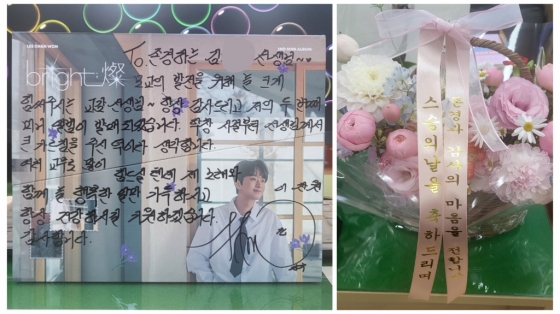 LEE CHAN WON
bright;燦
To. 존경하는 김 선생님~
모교의 발전을 위해 늘 크게
힘써주시는 교장 선생님~ 항상 감사드리고 저의 두 번째
미니 앨범이 발매 되었습니다.
큰 가르침을
여러 교무로 많이
힘드실텐데 제 노래와
함께 늘 행복한 일만 가득하시고
항상 건강하시길 기원하겠습니다.
감사합니다.
이찬원
존경과 감사의 마음을 전합니다
스승의날을 축하드리며